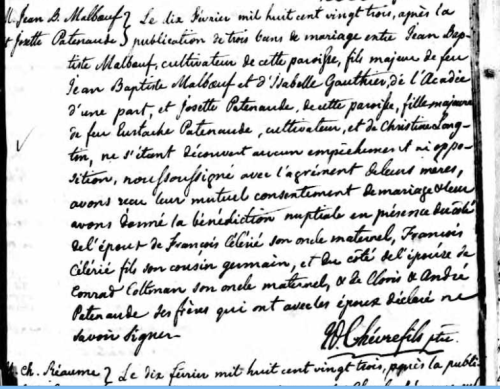 M. Jean B. Malbœuf } Le dix février mil huit cent vingt trois, après la
et Josette Patenaude } publication de trois bans de mariage entre Jean Bap-
tiste Malbœuf, cultivateur de cette paroisse, fils majeur de feu
Jean Baptiste Malbœuf et d'Isabelle Gauthier, de l'Acadie
d'une part, et Josette Patenaude, de cette paroisse, fille majeure
de feu Eustache Patenaude, cultivateur, et de Christine Lang-
tin, ne s'étant découvert aucun empêchement ni oppo-
sition, nous soussigné avec l'agrément de leurs mères,
avons recu leur mutuel consentement de mariage & leur
avons donné la bénédiction nuptiale en présence du côté
de l'époux de François Célérié son oncle maternel, François
Célérié fils son cousin germain, et du côté de l'épouse de
Conrad son oncle maternel, & de Clovis & André
Patenaude ses frères qui ont avec les époux déclaré ne
savoir signer
Chèvrefils ptre.
M. Ch. Réaume } Le dix février mil huit cent vingt trois, après la publi-